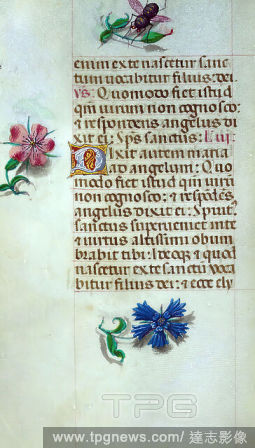 enim ex te nascetur sanc
tum vocabitur filius: dei
ỹs: Quomodo fiet istud
qm̃ virum non cognosco:
⁊ respondens angelus di
xit ei: Sp̃s sanctus: L vi
Dixit autem maria
ad angelum: Quo
modo fiet istud qm̃ virũ
non cognosco: ⁊ respõdẽs
angelus dixit ei: Sp̃ũs:
sanctus superveniet in te
⁊ virtus altissimi obum
brabit tibi: Ideoqz ⁊ quod
nascetur ex te sanctũ voca
bitur filius dei: ⁊ ecce ely
TPG
www.tpgnews.com／達志影像